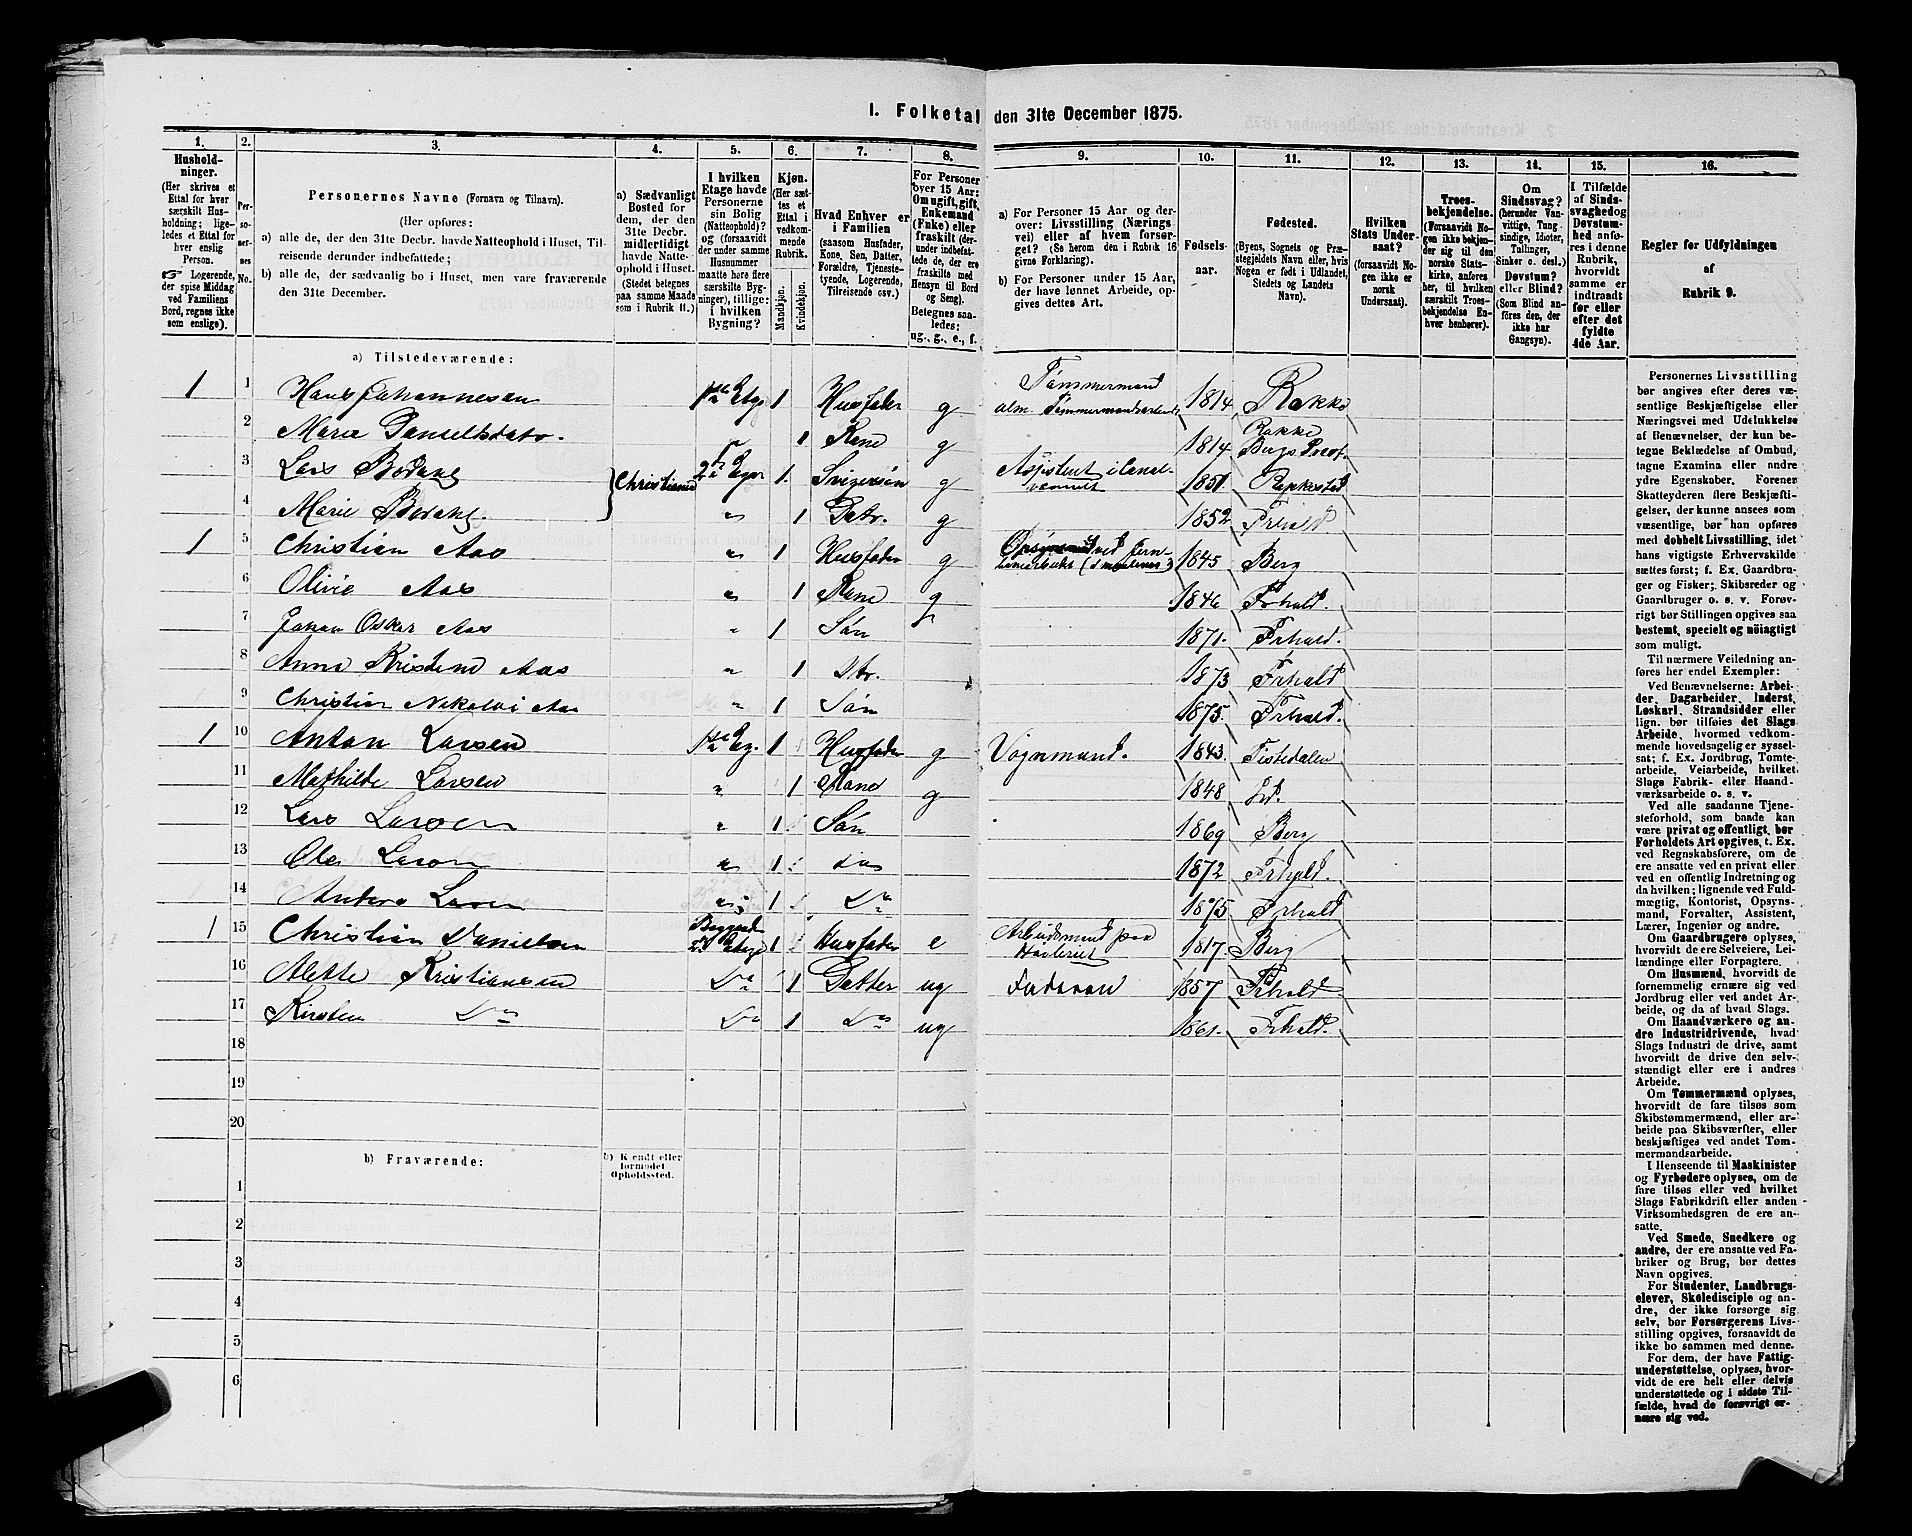 1. Folketal den 31te December 1875.
1. 2. 3. 4. 5. 6. 7. 8. 9. 10. 11. 12. 13. 14. 15. 16.
Husholdninger.
(Her skrives et
Ettal for hver
særskilt Husholdning;
ligeledes et Ettal for
hver enslig
Person.
Logerende,
der spise Middag
ved Familiens
Bord, regnes ikke
som enslige).
Personernes No.
Personernes Navne (Fornavn og Tilnavn).
(Her opføres:
a) alle de, der den 31te Decbr. havde Natteophold i Huset, Tilreisende derunder indbefattede;
b) alle de, der sædvanlig bo i Huset, men vare fraværende
den 31te December.
a) Sædvanligt
Bosted for
dem, der den
31te Decbr.
midlertidigt
havde Natteophold
i Huset.
(Stedet betegnes
paa samme Maade
som i Rubrik 11.)
I hvilken
Etage havde
Personerne
sin Bolig
(Natteophold)?
og (forsaavidt
der under samme
Husnummer
maatte høre flere
særskilte Bygninger),
tillige:
i hvilken
Bygning?
Kjøn.
(Her sættes
et
Ettal i
vedkommende
Rubrik.
Mandkjøn.
Kvindekjøn.
Hvad Enhver er
i Familien
(saasom Husfader,
Kone, Søn, Datter,
Forældre, Tjenestetyende,
Logerende,
Tilreisende osv.)
For Personer
over 15 Aar:
Om ugift, gift,
Enkemand
(Enke) eller
fraskilt (derunder
indbefattede
de, der ere
fraskilte med
Hensyn til Bord
og Seng).
Betegnes saaledes:
ug., g., e., f.
a) For Personer 15 Aar og derover:
Livsstilling (Næringsvei)
eller af hvem forsørget?
(Se herom den i Rubrik 16
givne Forklaring).
b) For Personer under 15 Aar,
der have lønnet Arbeide, opgives
dettes Art.
Fødselsaar.
Fødested.
(Byens, Sognets og Præstegjeldets
Navn eller, hvis
Nogen er født i Udlandet,
Stedets og Landets
Navn).
Hvilken
Stats Undersaat?
(forsaavidt Nogen
ikke er
norsk
Undersaat).
Troesbekjendelse.
(Forsaavidt Nogen
ikke bekjender
sig til den
norske Statskirke,
anføres
her, til hvilken
særskilt Troesbekjendelse
Enhver
henhører).
Om
Sindssvag?
(herunder Vanvittige,
Tungsindige,
Idioter,
Tullinger,
Sinker o. desl.)
Døvstum?
eller Blind?
(Som Blind anføres
den, der
ikke har
Gangsyn).
I Tilfælde
af Sindssvaghed
og
Døvstumhed
anføres
i denne
Rubrik,
hvorvidt
samme er
indtraadt
før eller
efter det
fyldte
4de Aar.
Regler for Udfyldningen
af
Rubrik 9.
a) Tilstedeværende:
1 1 Hans Johannesen 1ste Etg 1 Husfader g Tømmermand alm. Tømmermandsarbeide 1814 Rakke
2 Maria Danielsdatr. 1 Kone g 1814 Rakke Bergs Præst.
3 Lars Bodang Christiania 2 Etg 1 Svigersøn g Assistent i Canalvæsenet 1851 Rakkestad
4 Marie Bodang " 1 Datr. g 1852 Frhald
1 5 Christian Aas " 1 Husfader g 1845 Berg
6 Olivie Aas " 1 Kone g 1846 Frhald.
7 Johan Oskar Aas " 1 Søn 1871. Frhald.
8 Anna Kristine Aas " 1 Dtr. 1873 Frhald
9 Christian Nikolai Aas " 1 Søn 1875. Frhald.
1 10 Anton Larsen 1ste Etg. 1 Husfader g Vognmand. 1843. Tistedalen
11 Mathilde Larsen " 1 Kone g 1848 Id.
12 Lars Larsen " 1 Søn 1869 Berg
13 Ole Larsen " 1 do 1872 Frhald.
14 Larsen " 1 Do 1875 Frhald
1 15 Christian Danielsen Baggaard Etage 1 Husfader e Arbeidsmand paa 1817. Berg
16 Mette Kristiansen Do 1 Datter ug 1857 Frhald
17 Kirsten Do Do 1 Do ug 1861. Frhald.
18
19
20
b) Fraværende:
b) Kjendt eller
formodet
Opholdssted.
1
2
3
4
5
6
Personernes Livsstilling
bør angives efter deres væsentlige
Beskjæftigelse eller
Næringsvei med Udelukkelse
af Benævnelser, der kun betegne
Beklædelse af Ombud,
tagne Examina eller andre
ydre Egenskaber. Forener
Skatteyderen flere Beskjæftigelser,
der kunne ansees som
væsentlige, bør han opføres
med dobbelt Livsstilling, idet
hans vigtigste Erhvervskilde
sættes først; f. Ex. Gaardbruger
og Fisker; Skibsreder og
Gaardbruger o. s. v. Forøvrigt
bør Stillingen opgives saa
bestemt, specielt og nøiagtigt
som muligt.
Til nærmere Veiledning anføres
her endel Exempler:
Ved Benævnelserne: Arbeider,
Dagarbeider, Inderst,
Løskarl, Strandsidder eller
lign. bør tilføies det Slags
Arbeide, hvormed vedkommende
hovedsagelig er sysselsat;
f. Ex. Jordbrug, Tomtearbeide,
Veiarbeide, hvilket
Slags Fabrik- eller Haandværksarbeide
o. s. v.
Ved alle saadanne Tjenesteforhold,
som baade kan
være privat og offentligt, bør
Forholdets Art opgives, t. Ex.
ved Regnskabsførere, om de
ere ansatte ved en privat eller
ved en offentlig Indretning og
da hvilken; lignende ved Fuldmægtig,
Kontorist, Opsynsmand,
Forvalter, Assistent,
Lærer, Ingeniør og andre.
Om Gaardbrugere oplyses,
hvorvidt de ere Selveiere, Leilændinge
eller Forpagtere.
Om Husmænd, hvorvidt de
fornemmelig ernære sig ved
Jordbrug eller ved andet Arbeide,
og da hvad Slags.
Om Haandværkere og andre
Industridrivende, hvad
Slags Industri de drive, samt
hvorvidt de drive den selvstændigt
eller ere i andres
Arbeide.
Om Tømmermænd oplyses,
hvorvidt de fare tilsøs som
Skibstømmermænd, eller arbeide
paa Skibsværfter, eller
beskjæftiges ved andet Tømmermandsarbeide.
I Henseende til Maskinister
og Fyrbødere oplyses, om de
fare tilsøs eller ved hvilket
Slags Fabrikdrift eller anden
Virksomhedsgren de ere ansatte.
Ved Smede, Snedkere og
andre, der ere ansatte ved Fabriker
og Brug, bør dettes
Navn opgives.
For Studenter, Landbrugselever,
Skoledisciple og andre,
der ikke forsørge sig
selv, bør Forsørgerens Livsstilling
opgives, forsaavidt de
ikke bo sammen med denne.
For dem, der have Fattigunderstøttelse,
oplyses, hvorvidt
de ere helt eller delvis
understøttede og i sidste Tilfælde,
hvad de forøvrigt ernære
sig ved.